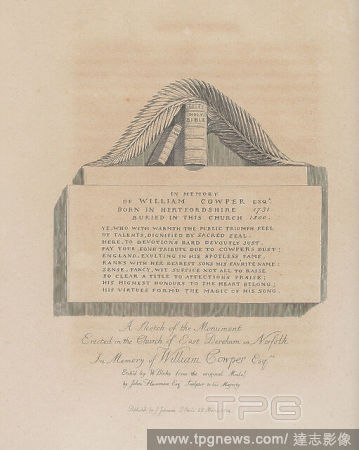 HOLY
BIBLE
IN MEMORY
OF WILLIAM COWPER ESQR.
BORN IN HERTFORDSHIRE 1731
BURIED IN THIS CHURCH 1800.
YE, WHO WITH WARMTH THE PUBLIC TRIUMPH FEEL
OF TALENTS, DIGNIFIED BY SACRED ZEAL,
HERE, TO DEVOTIONS BARD DEVOUTLY JUST,
PAY YOUR FOND TRIBUTE DUE TO COWPERS DUST;
ENGLAND, EXULTING IN HIS SPOTLESS FAME,
RANKS WITH HER DEAREST SONS HIS FAVRITE NAME:
SENSE, FANCY, WIT SUFFICE NOT ALL TO RAISE
SO CLEAR A TITLE TO AFFECTIONS PRAISE;
HIS HIGHEST HONOURS TO THE HEART BELONG;
HIS VIRTUES FORMD THE MAGIC OF HIS SONG.
A Sketch of the Monument
Erected in the Church of East Dereham in Norfolk
In Memory of William Cowper Esqre.
Etch'd by W Blake from the original Model
by John Flaxman Esq. Sculptor to his Majesty
Publish'd by J Johnson St Pauls 25 March 1804
TPG
www.tpgnews.com / 達志影像